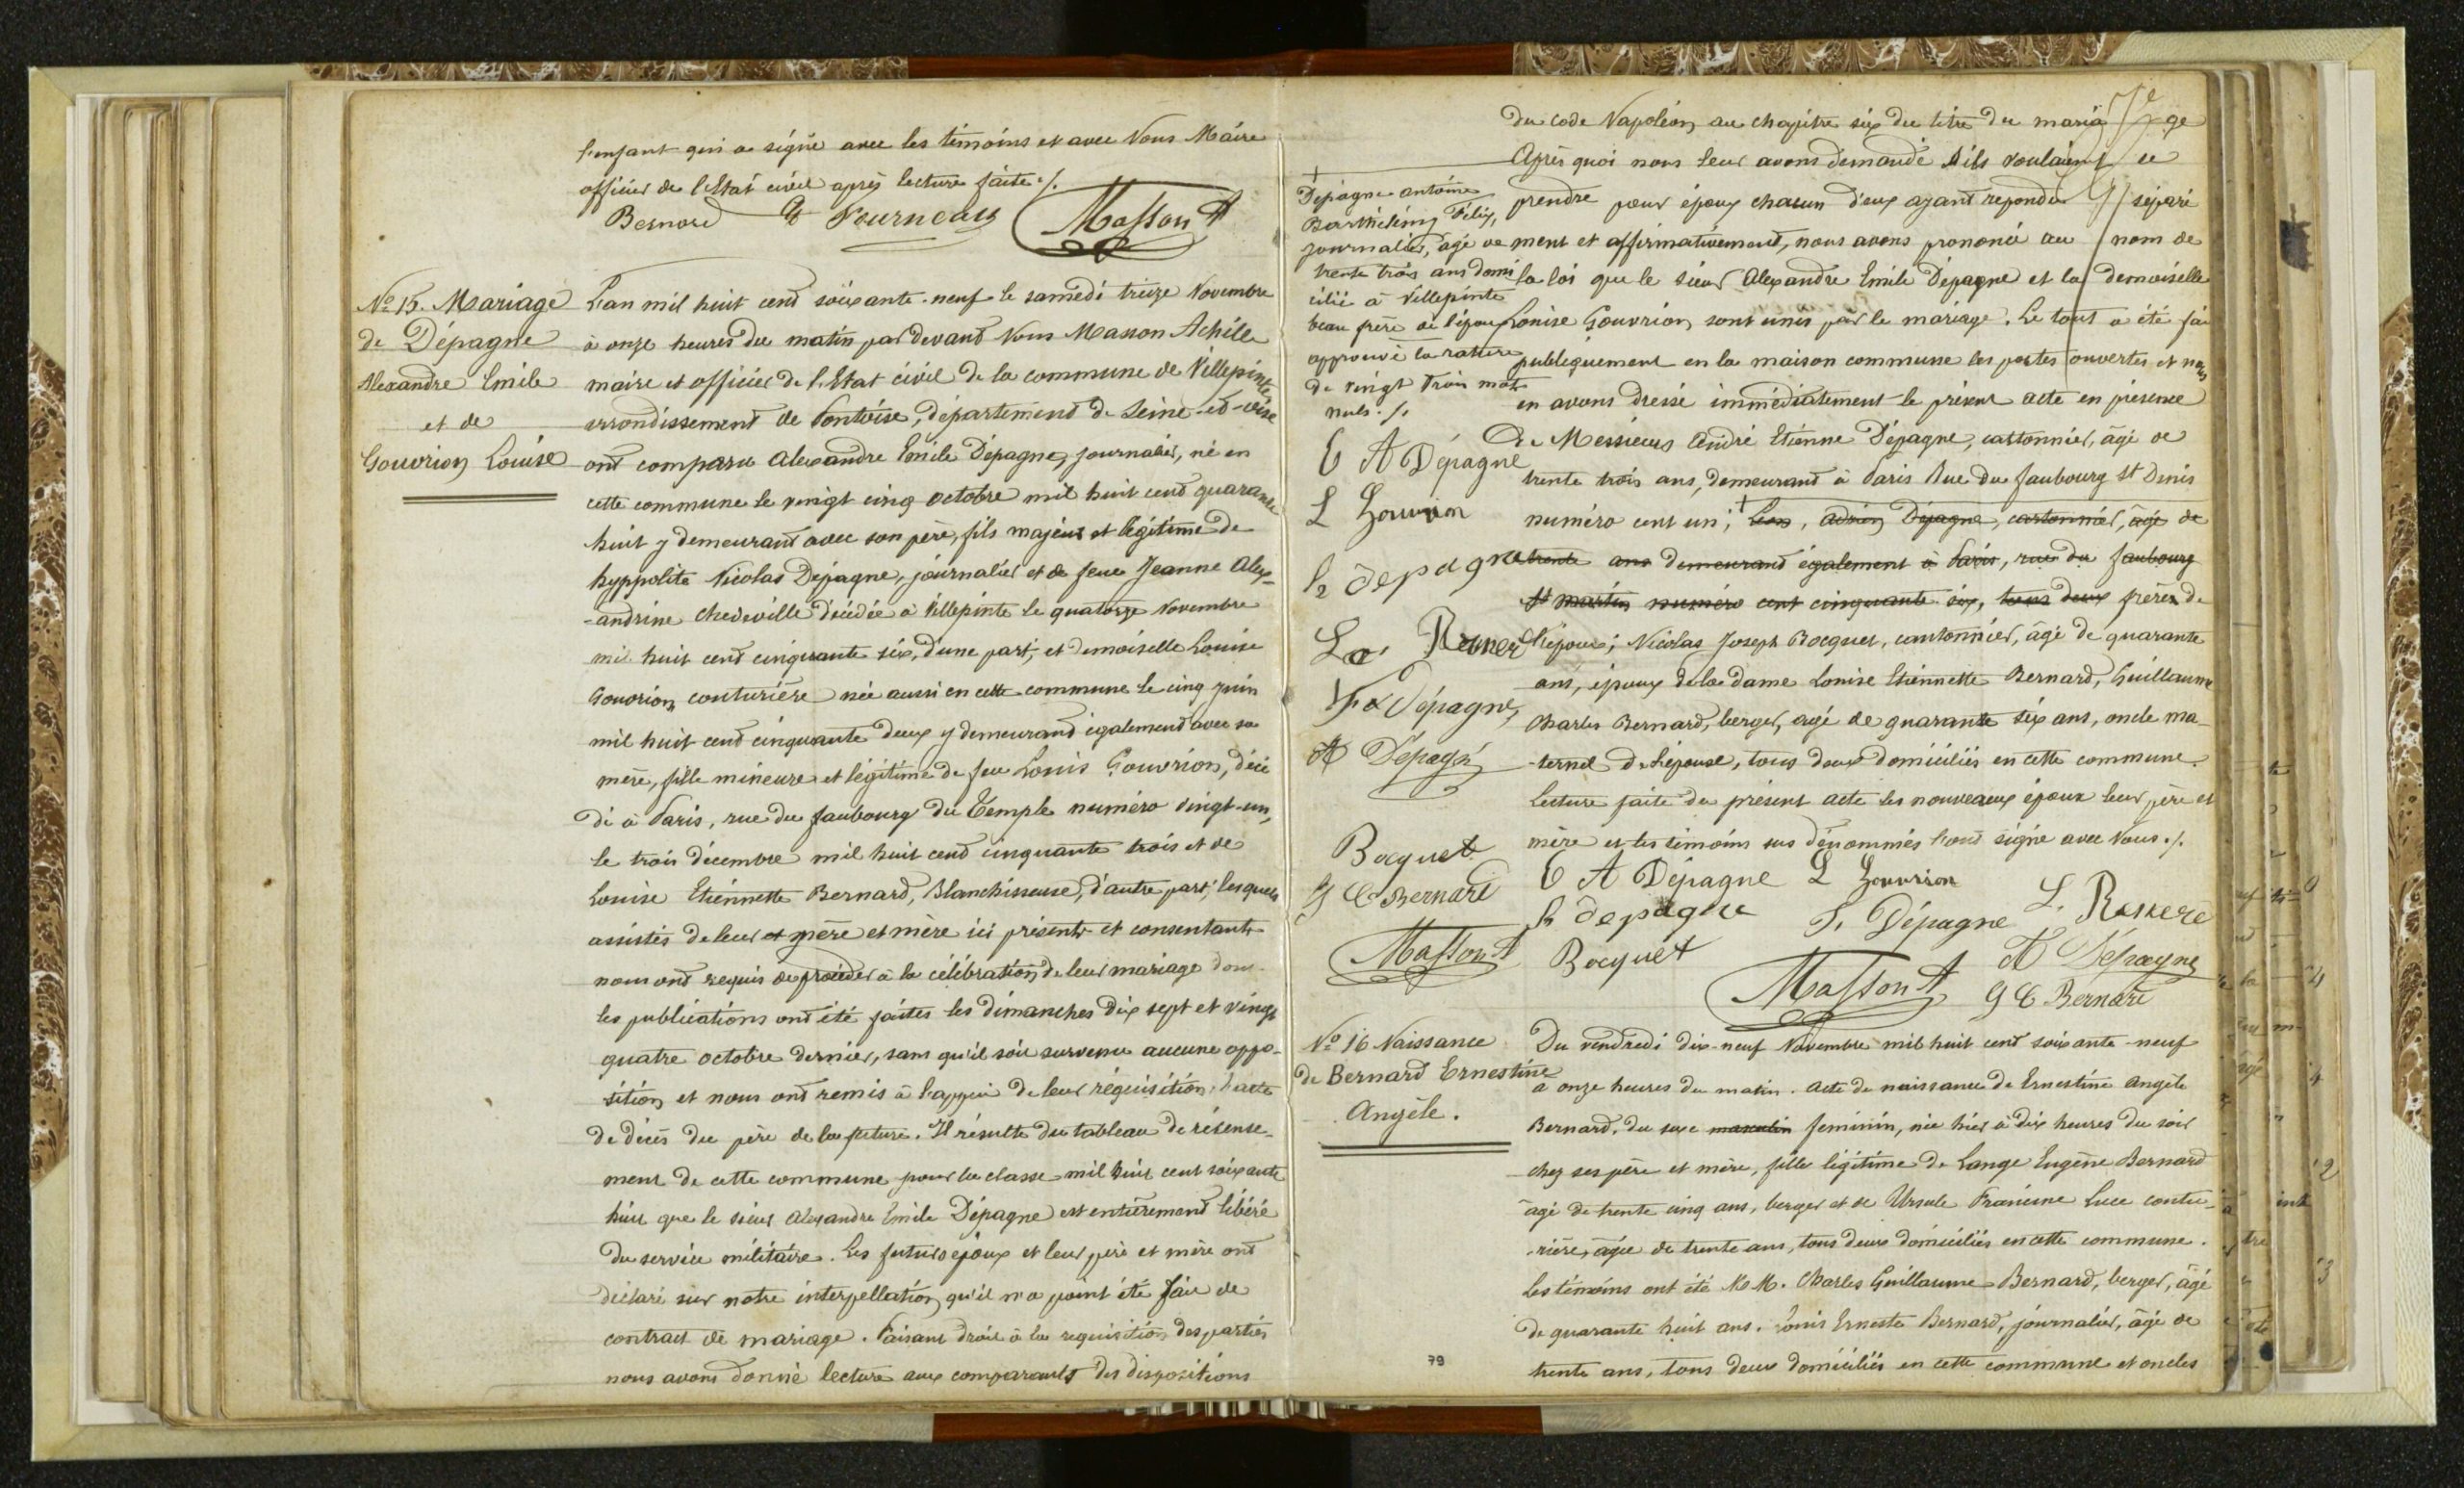 l'enfant qui a signé avec les témoins et avec Nous Maire
officier de l'Etat civil après lecture faite ./.
Bernard
Masson A
No 15. Mariage
de Dépagne
Alexandre Emile
et de
Gouvrion Louise
L'an mil huit cent soixante-neuf le samedi treize Novembre
à onze heures du matin par devant Nous Masson Achille
maire et officier de l'Etat civil de la commune de Villepinte
arrondissement de Pontoise, département de Seine-et-oise
ont comparu Alexandre Emile Dépagne, journalier, né en
cette commune le vingt cinq octobre mil huit cent quarante
huit y demeurant avec son père, fils majeur et légitime de
hyppolite Nicolas Dépagne, journalier et de feue Jeanne Alex-
-andrine Chedeville décédée à Villepinte le quatorze Novembre
mil huit cent cinquante six, d'une part, et demoiselle Louise
Gouvrion couturière née aussi en cette commune le cinq juin
mil huit cent cinquante deux y demeurant également avec sa
mère, fille mineure et légitime de feu Louis Gouvrion, décé
dé à Paris, rue du faubourg du Temple numéro vingt-un,
le trois décembre mil huit cent cinquante trois et de
Louise Etiennette Bernard, Blanchisseuse, d'autre part; lesquels
assistés de leur et père et mère ici présents et consentants
nous ont requis de procéder à la célébration de leur mariage dont
les publications ont été faites les dimanches dix sept et vingt
quatre octobre dernier, sans qu'il soit survenu aucune oppo-
sition et nous ont remis à l'appui de leur réquisition, l'acte
de décès du père de la future. Il résulte du tableau de recense-
ment de cette commune pour la classe mil huit cent soixante
huit que le sieur Alexandre Emile Dépagne est entièrement libéré
du service militaire. Les futurs époux et leur père et mère ont
déclaré sur notre interpellation qu'il n'a point été fait de
contract de mariage. Faisant droit à la requisition des parties
nous avons donné lecture aux comparants des dispositions
du code Napoléon au chapitre six du titre du maria ge
Après quoi nous leur avons demandé s'ils voulaient se
prendre pour époux chacun d'eux ayant répondu séparé
ment et affirmativement, nous avons prononcé au nom de
la loi que le sieur Alexandre Emile Dépagne et la demoiselle
Louise Gouvrion sont unis par le mariage. Le tout a été fai
publiquement en la maison commune les portes ouvertes et nous
en avons dressé immédiatement le présent acte en présence
De Messieurs André Etienne Dépagne, cartonnier, âgé de
trente trois ans, demeurant à Paris Rue du faubourg St Denis
numéro cent un; + Léon, adrien Dépagne, cartonnier, âgé de
trente ans demeurant également à Paris, rue du faubourg
St martin numéro cent cinquante six, tous deux frères de
l'époux; Nicolas Joseph Bocquet, cantonnier, âgé de quarante
ans, époux de la dame Louise Etiennette Bernard, Guillaume
Charles Bernard, berger, âgé de quarante six ans, oncle ma-
-ternel de l'épouse, tous deux domiciliés en cette commune.
Lecture faite du présent acte les nouveaux époux leur père et
mère et les témoins sus dénommés l'ont signé avec Nous ./.
E A Dépagne L Gouvrion
h depagne
F. Dépagne
Bocquet
A Dépagne
Masson A
G C Bernard
+
Dépagne antoine
Barthélémy Félix,
journalier, âgé de
trente trois ans domi
cilié à Villepinte
beau frère de l'époux
approuvé la rature
de vingt trois mots
nuls ./.
E A Dépagne
L Gouvrion
h depagne
Dépagne
A Dépagne
Bocquet
G C Bernard
Masson A
No 16 Naissance
de Bernard Ernestine
Angèle.
Du vendredi dix-neuf Novembre mil huit cent soixante-neuf
à onze heures du matin. Acte de naissance de Ernestine Angèle
Bernard, du sexe masculin feminin, née hier à dix heures du soir
chez ses père et mère, fille légitime de Lange Eugène Bernard
âgé de trente cinq ans, berger et de Ursule Francine Luce coutu-
-rière, âgée de trente ans, tous deux domiciliés en cette commune.
Les témoins ont été M.M. Charles Guillaume Bernard, berger, âgé
de quarante huit ans. Louis Ernest Bernard, journalier, âgé de
trente ans, tous deux domiciliés en cette commune et oncles
79